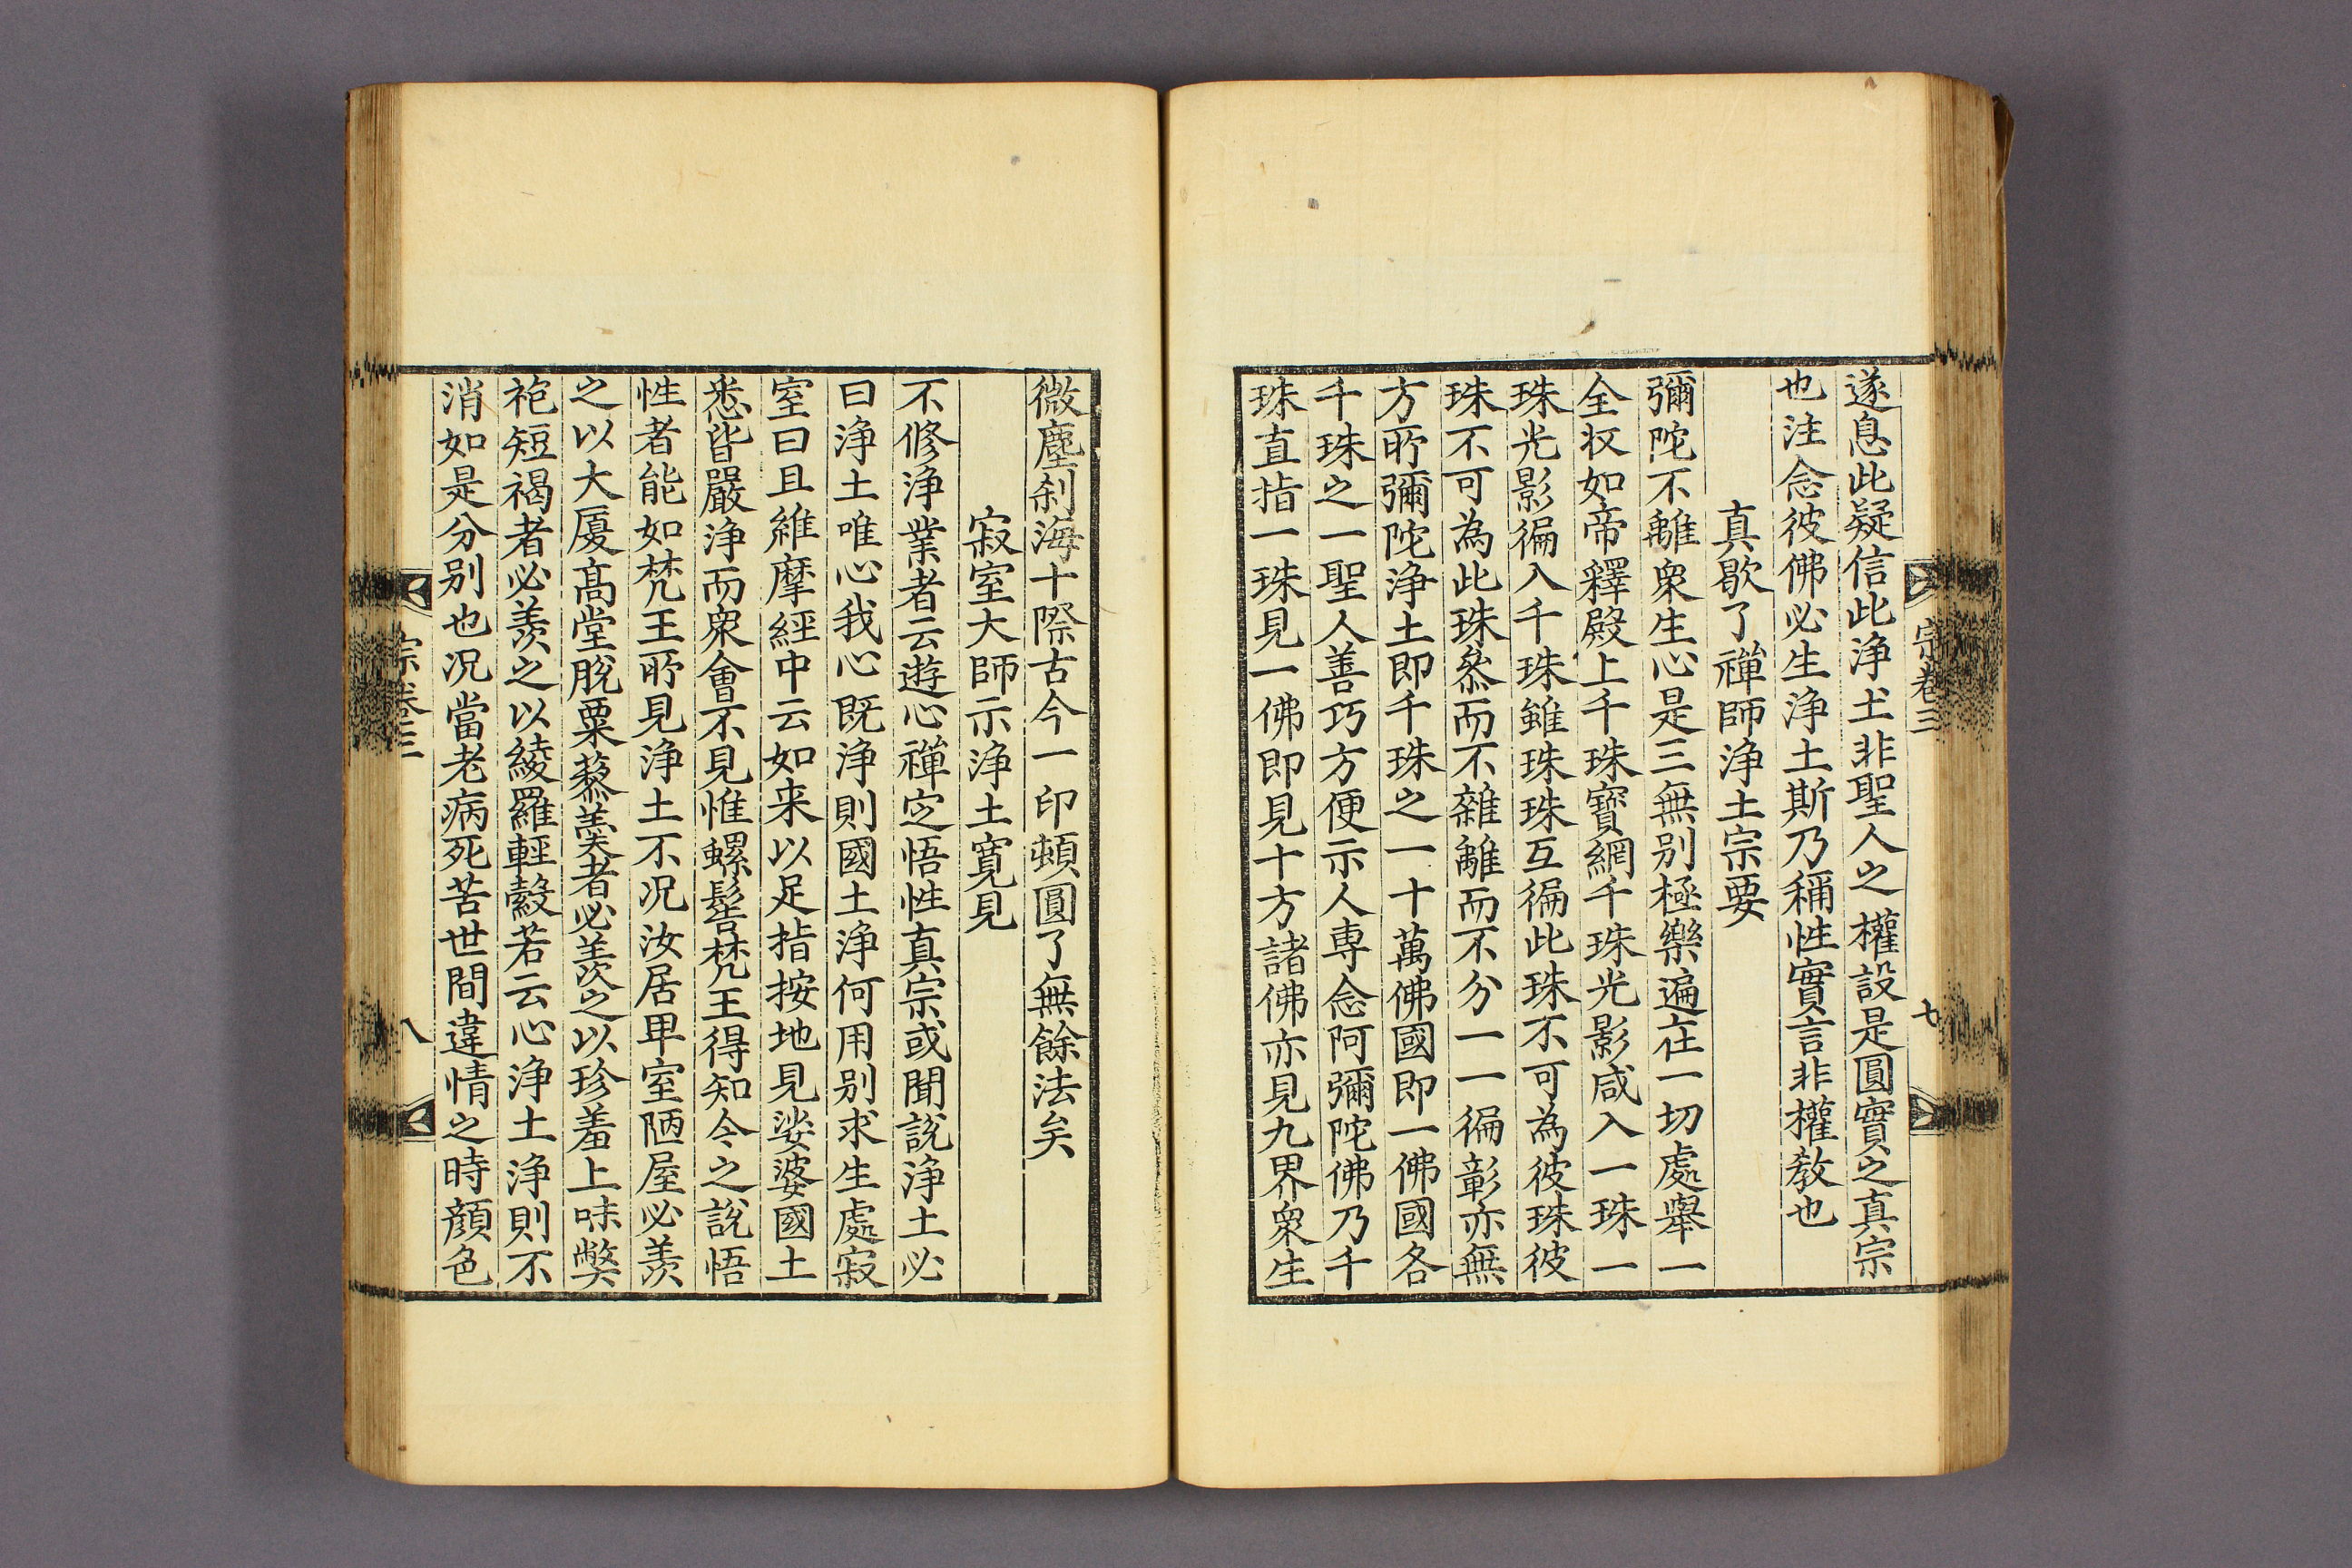 宗卷三
七
遂息此疑信此浄土非聖人之權設是圓實之真宗
也注念彼佛必生浄土斯乃稱性實言非權教也
真歇了禪師浄土宗要
彌陀不離衆生心是三無别極樂遍在一切處舉一
全收如帝釋殿上千珠寳網千珠光影咸入一珠一
珠光影徧入千珠雖珠珠互徧此珠不可為彼珠彼
珠不可為此珠叅而不雜離而不分一一徧彰亦無
方所彌陀浄土即千珠之一十萬佛國即一佛國各
千珠之一聖人善巧方便示人專念阿彌陀佛乃千
珠直指一珠見一佛即見十方諸佛亦見九界衆生
微塵刹海十際古今一印頓圓了無餘法矣
寂室大師示浄土寛見
不修浄業者云遊心禪定悟性真宗或聞說浄土必
曰浄土唯心我心既浄則國土浄何用别求生處寂
室曰且維摩經中云如来以足指按地見娑婆國土
悉皆嚴浄而衆會不見惟螺髻梵王得知今之說悟
性者能如梵王所見浄土不况汝居卑室陋屋必羨
之以大厦髙堂脫粟藜羹者必羨之以珍羞上味弊
袍短褐者必羨之以綾羅輕縠若云心浄土浄則不
消如是分别也况當老病死苦世間違情之時顔色
宗卷三
八